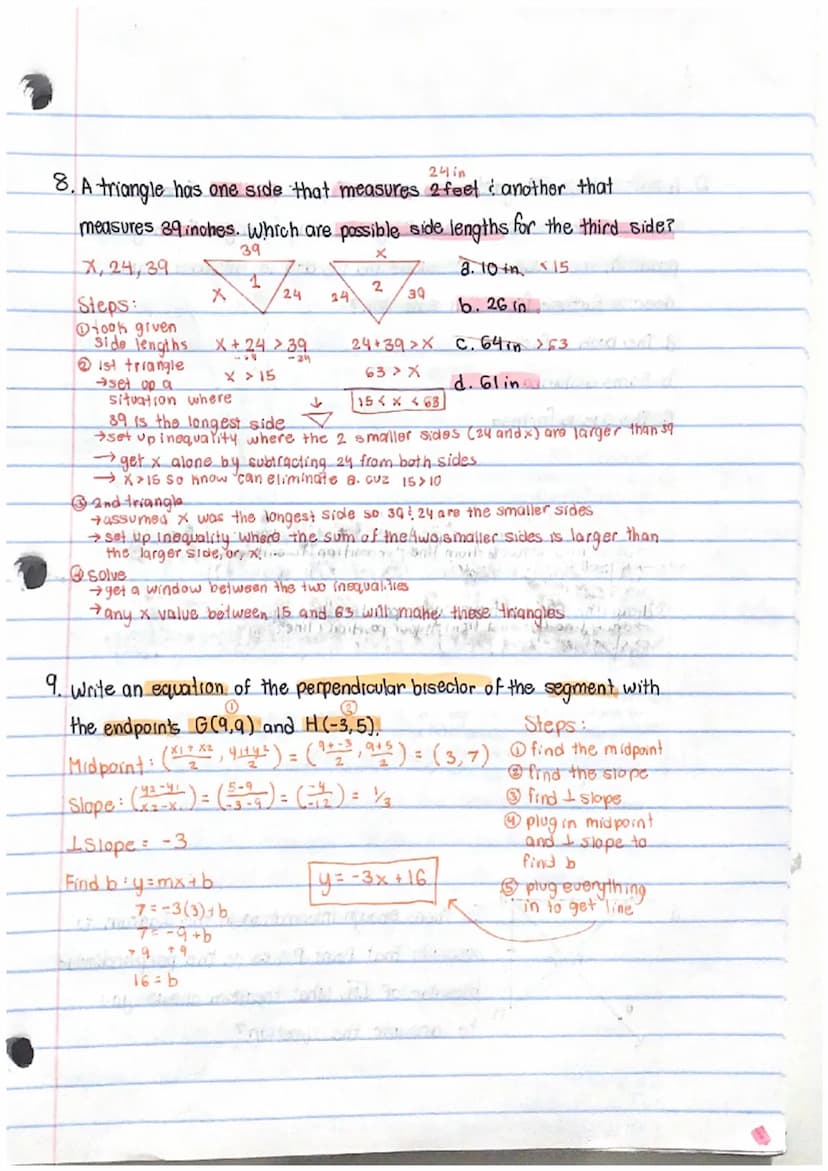 24in
8. A triangle has one side that measures 2 feet & another that
measures 39 inches. Which are possible side lengths for the third side?
x, 24, 39
39
x
1
24
x
24
2
39
a. 10 in < 15
b. 26 in
c. 64 in > 63
d. 61 in
Steps:
① took given
side lengths
x + 24 > 39
-24 -24
x > 15
24 + 39 > x
63 > x
15 < x < 63
② 1st triangle
→ set up a
situation where
39 is the longest side
→ set up inequality where the 2 smaller sides (24 and x) are larger than 39
→ get x alone by subtracting 24 from both sides
→ x > 15 so know can eliminate a. cuz 15 > 10
③ 2nd triangle
→ assumed x was the longest side so 39 & 24 are the smaller sides
→ set up inequality where the sum of the two smaller sides is larger than
the larger side, or, x.
④ solve
→ get a window between the two inequalities
→ any x value between 15 and 63 will make these triangles
9. Write an equation of the perpendicular bisector of the segment with
the endpoints G(9,9) and H(-3,5).
① ②
Midpoint: (x1 + x2 / 2, y1 + y2 / 2) = (9 + -3 / 2, 9 + 5 / 2) = (3, 7)
Slope: (y2 - y1 / x2 - x1) = (5 - 9 / -3 - 9) = (-4 / -12) = 1/3
⊥ Slope = -3
Find b: y = mx + b
7 = -3(3) + b
7 = -9 + b
+9 +9
16 = b
y = -3x + 16
Steps:
① find the midpoint
② find the slope
③ find ⊥ slope
④ plug in midpoint
and ⊥ slope to
find b
⑤ plug everything
in to get line